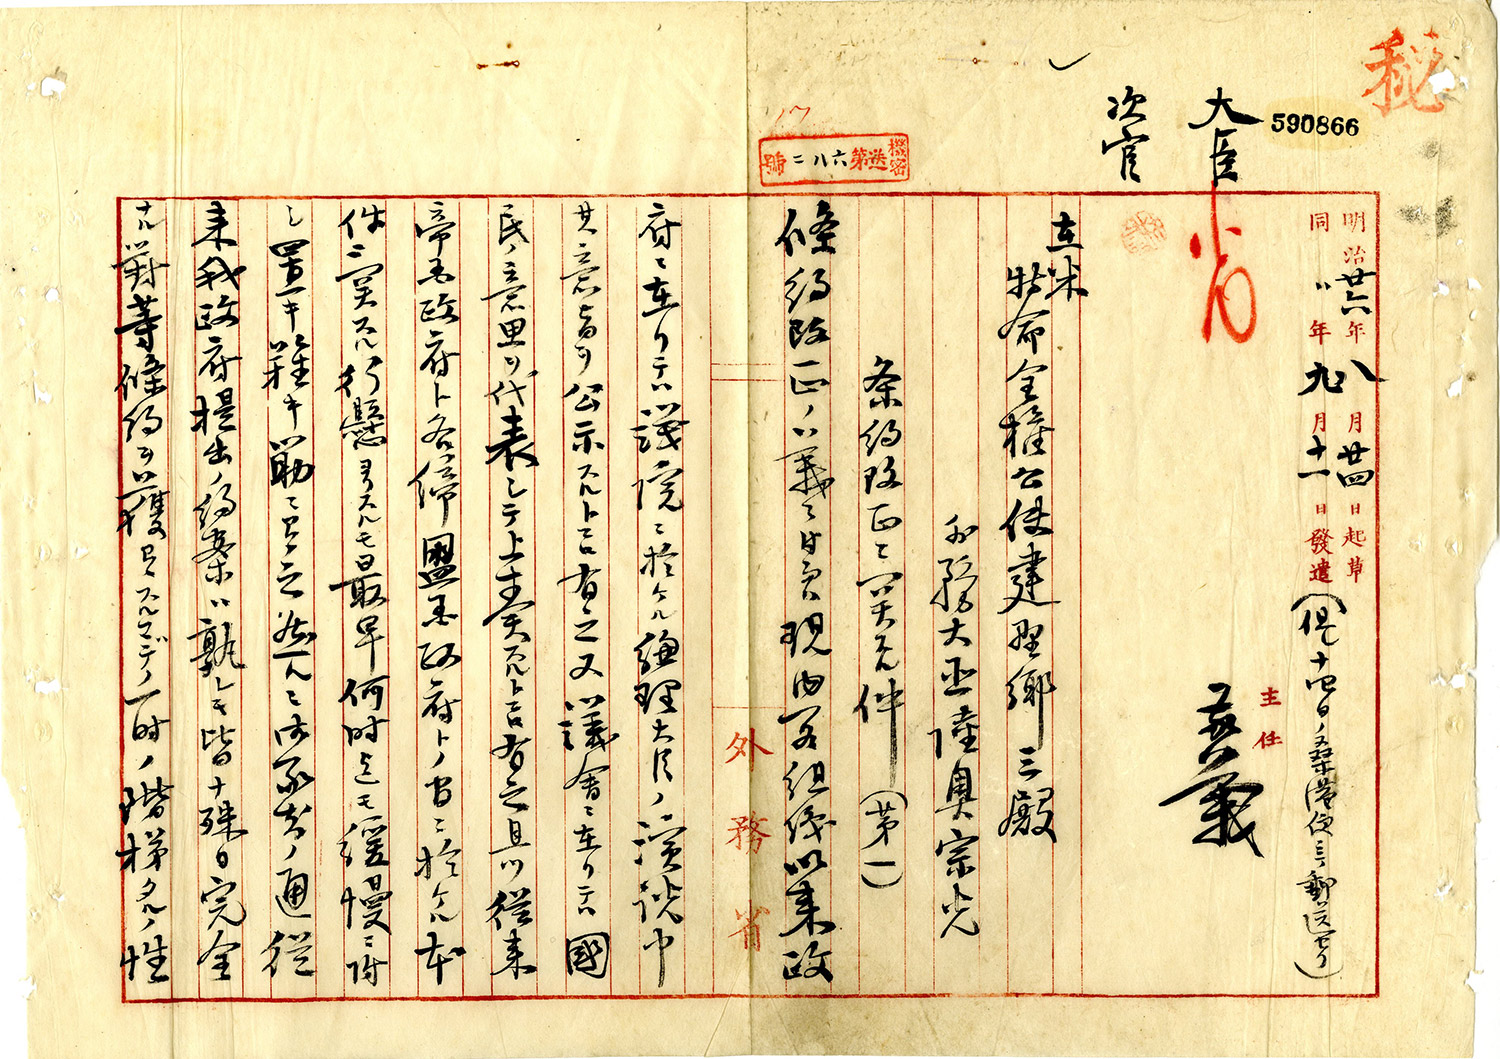 秘
590866
大臣
次官
機密
送第六八二號
17
明治廿六年八月廿四日起草
同〃年九月十一日發遣
(但十四日ノ桑港便ニテ郵送セリ)
主任
在米
特命全権公使建野郷三殿
外務大臣陸奥宗光
条約改正ニ関スル件(第一)
條約改正ノ義ニ付テハ現内閣組織以来政
外務省
府ニ在リテハ議院ニ於ケル総理大臣ノ演説中
其意旨ヲ公示スル所有之又議会ニ在リテハ國
民ノ意思ヲ代表シテ上奏スル所有之且ツ従来
帝国政府ト各締盟国政府トノ間ニ於ケル本
件ニ関スル行懸ヨリスルモ最早何時迄モ緩慢ニ附
シ置キ難キ場合ニ有之然ルニ御承知ノ通従
来我政府提出ノ約案ハ孰レモ皆ナ殊ニ完全
ナル対等條約ヲ獲得スルマデノ一時ノ階梯タルノ性